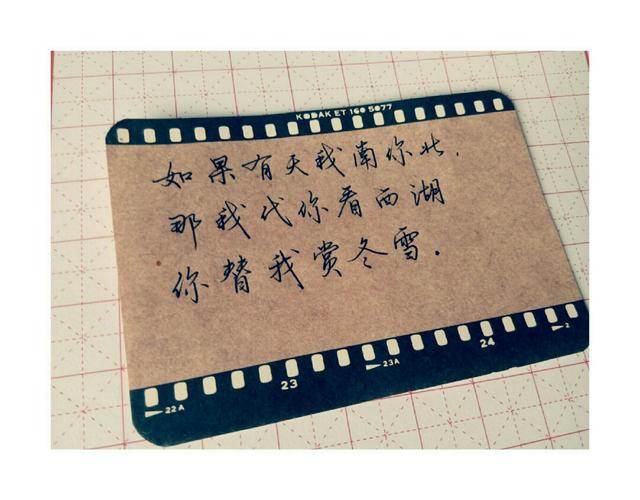 KODAK ET 160 5077
如果有天我南你北.
那我代你看西湖
你替我赏冬雪.
22A 23 23A 24 2